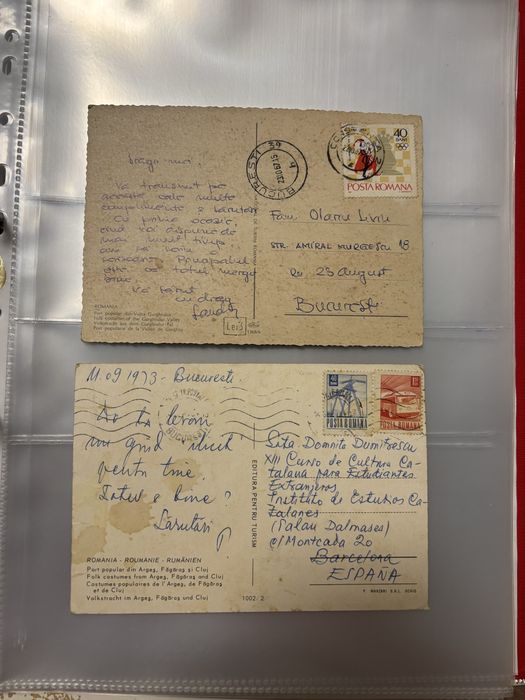 Dragii mei!
Vă transmit pe
această cale multe
complimente și sărutări
Cu prima ocazie,
când voi dispune de
mai mult timp
am să vă scriu o
scrisoare. Principalul
este că totul merge
bine.
Vă sărut
cu drag
ROMANIA
Port popular din Valea Gurghiului
Folk costumes of the Gurghiului Valley
Volkstracht aus dem Gurghiului-Tal
Port populaire de la Vallée de Gurghiu
BUCUREȘTI 39
40
BANI
POSTA ROMANA
Fam. Olaru Liviu
STR. AMIRAL MURGESCU 18
23 August
București
Lei
11.09 1973 - București
un gînd
pentru tine.
Totul e bine?
Sărutări
ROMANIA - ROUMANIE - RUMÄNIEN
Port popular din Argeș, Făgăraș și Cluj
Folk costumes from Argeș, Făgăraș and Cluj
Costumes populaires de l'Argeș, de Făgăraș
et de Cluj
Volkstracht im Argeș, Făgăraș und Cluj
1002/2
EDITURA PENTRU TURISM
POSTA ROMANA
POSTA ROMANA
Domnita Dumitrescu
XIII Curso de Cultura Ca-
talana para Estudiantes
Extranjeros
Instituto de Estudios Ca-
talanes
(Palau Dalmases)
c/ Montcada 20
Barcelona
ESPAÑA